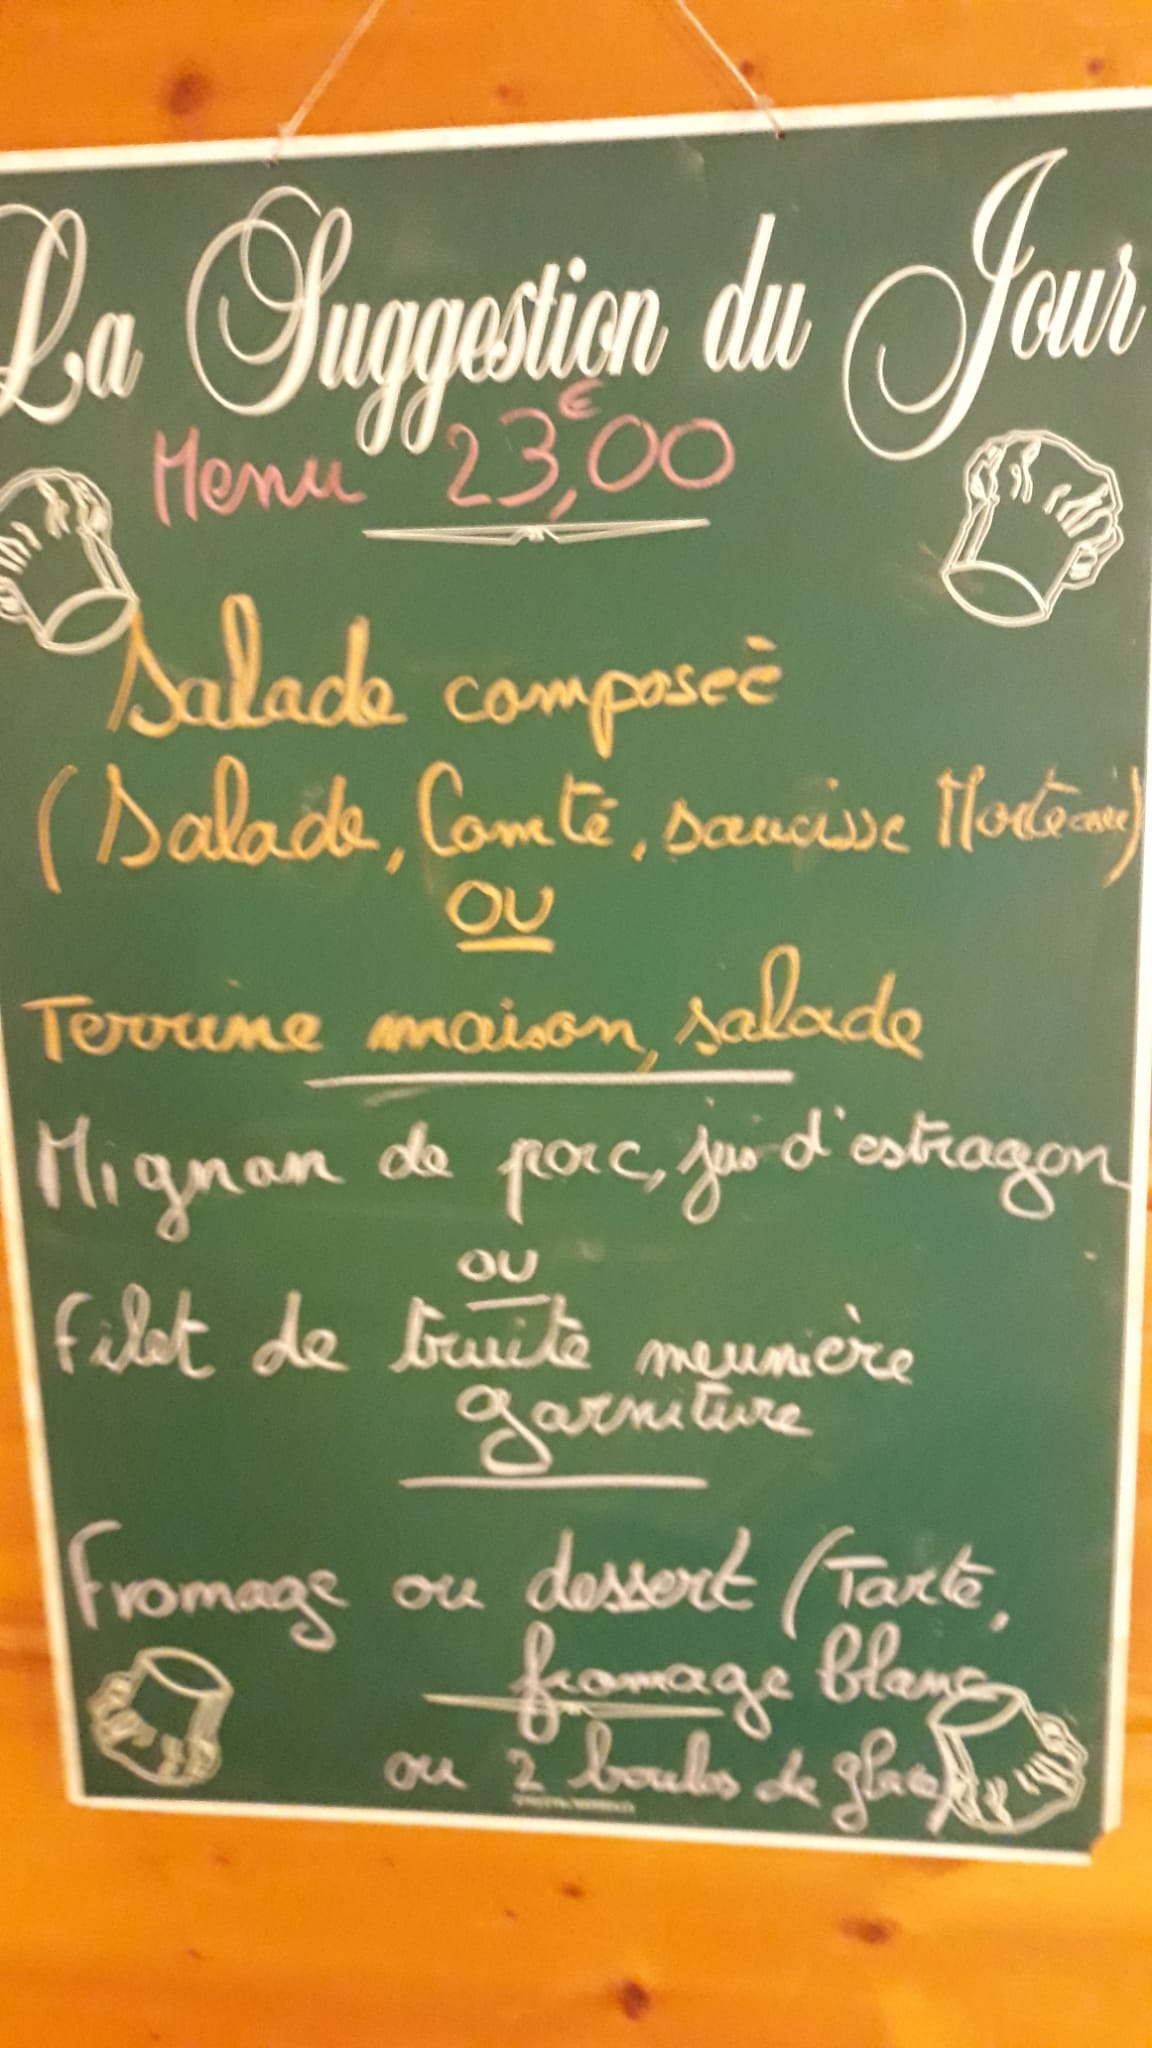 La Suggestion du Jour
Menu 23,€00
Salade composée
(Salade, Comté, saucisse Morteau)
OU
Terrine maison, salade
Mignon de porc, jus d'estragon
ou
Filet de truite meunière
garniture
Fromage ou dessert (Tarte,
fromage blanc
ou 2 boules de glace)